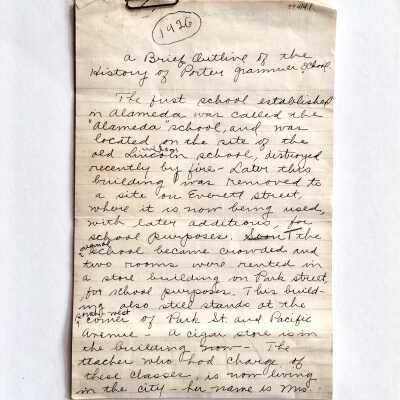 1926
A Brief Outline of the
History of Porter Grammer School
The first school established
in Alameda was called the
"Alameda" school, and was
located on the site of the
old Lincoln school, destroyed
recently by fire - Later this
building was removed to
a site on Everett street,
where it is now being used,
with later additions, for
school purposes. Soon The
school became crowded and
two rooms were rented in
a store building on Park street,
for school purposes. This build-
ing also still stands at the
corner of Park St. and Pacific
Avenue - A cigar store is in
the building now - The
teacher who had charge of
these classes, is now living
in the city - her name is Mrs.